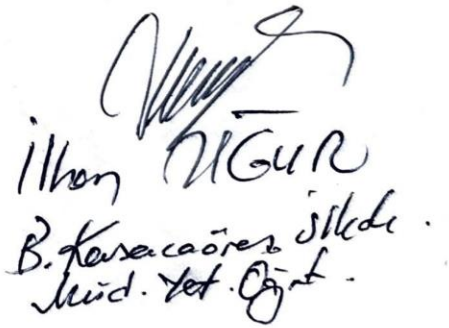 İlhan UĞUR
B. Karacaören İlkok.
Müd. Yet. Öğrt.